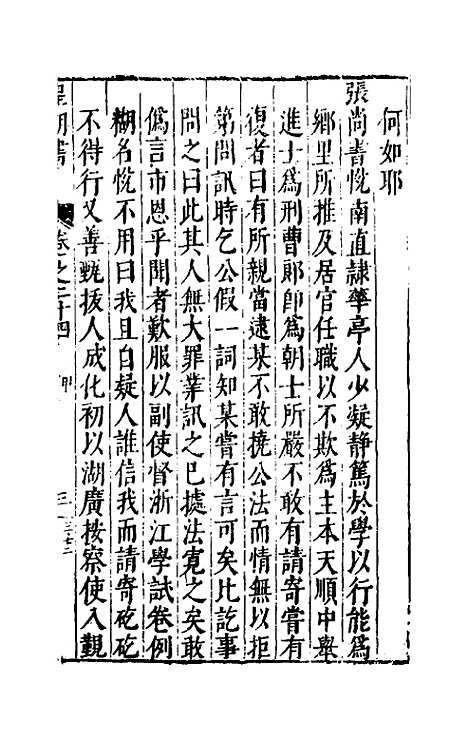 何如耶
張尚書悅南直隷華亭人少凝静篤於學以行能爲
鄉里所推及居官任職以不欺爲主本天順中舉
進士爲刑曹郎即爲朝士所嚴不敢有請寄嘗有
復者曰有所親當逮某不敢撓公法而情無以拒
第問訊時乞公假一詞知某嘗有言可矣比訖事
問之曰此其人無大罪業訊之已據法寛之矣敢
僞言市恩乎聞者歎服以副使督浙江學試卷例
糊名悅不用曰我且自疑人誰信我而請寄矻矻
不得行又善甄拔人成化初以湖廣按察使入覲
卷之三十四